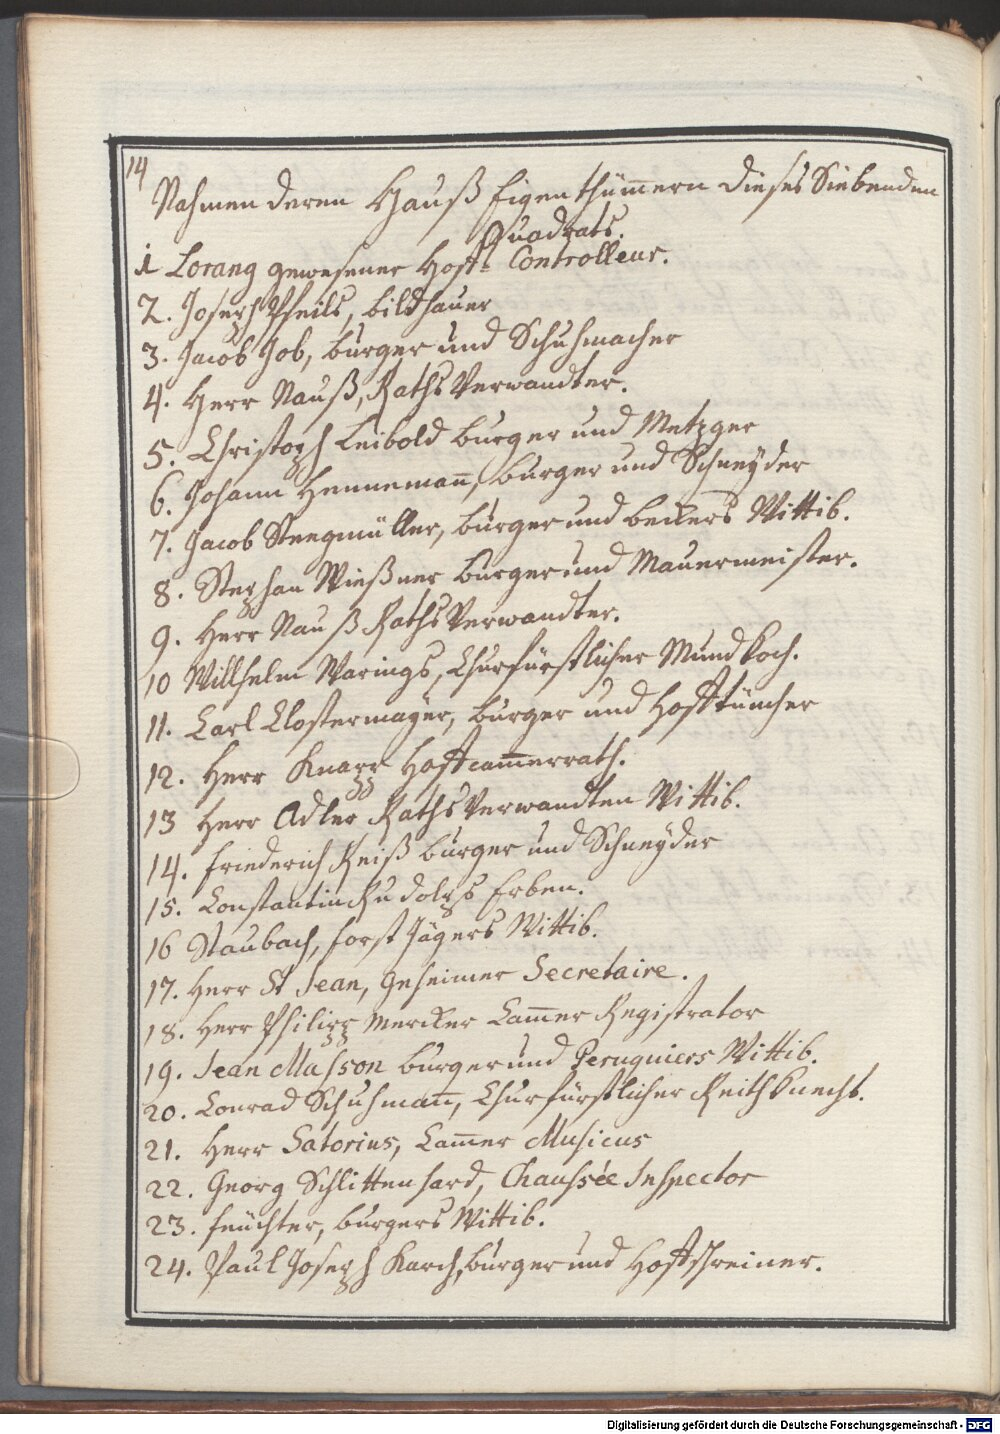 14
Nahmen deren Hauß Eigenthümern dieses Siebenden
Quadrats.
1 Lorang gewesener Hoff- Controlleur.
2. Joseph Pfeils, bildhauer
3. Jacob Job, burger und Schuhmacher
4. Herr Nauß, Raths Verwandter.
5. Christoph Leibold burger und Metzger
6. Johann Hennemañ, burger und Schneÿder
7. Jacob Steegmüller, burger und beckers Wittib.
8. Stephan Wießner burger und Mauermeister.
9. Herr Nauß Raths Verwandter.
10 Willhelm Warings, Churfürstlicher Mundkoch.
11. Carl Clostermaÿer, burger und Hofftüncher
12. Herr Knapp Hoffcam̄errath.
13 Herr Adler Raths Verwandten Wittib.
14. Friederich Reiß burger und Schneÿder
15. Constantin Rudolphs Erben.
16 Staubach, forst Jägers Wittib.
17. Herr St Jean, Geheimer Secretaire.
18. Herr Philipp Mercker Cam̄er Registrator
19. Jean Masson burger und Peruquiers Wittib.
20. Conrad Schuhmañ, Churfürstlicher Reithknecht.
21. Herr Satorius, Cam̄er Musicus
22. Georg Schlittenhard, Chaussée Inspector
23. feüchter, burgers Wittib.
24. Paul Joseph Karch, burger und Hoffschreiner.
Digitalisierung gefördert durch die Deutsche Forschungsgemeinschaft - DFG